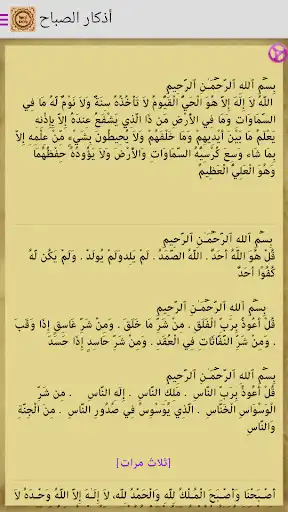 أذكار الصباح
بِسْمِ اللهِ الرَّحْمَـٰنِ الرَّحِيمِ
اللَّهُ لاَ إِلَهَ إِلاَّ هُوَ الْحَيُّ الْقَيُّومُ لاَ تَأْخُذُهُ سِنَةٌ وَلاَ نَوْمٌ لَّهُ مَا فِي
السَّمَاوَاتِ وَمَا فِي الأَرْضِ مَن ذَا الَّذِي يَشْفَعُ عِنْدَهُ إِلاَّ بِإِذْنِهِ
يَعْلَمُ مَا بَيْنَ أَيْدِيهِمْ وَمَا خَلْفَهُمْ وَلاَ يُحِيطُونَ بِشَيْءٍ مِّنْ عِلْمِهِ إِلاَّ
بِمَا شَاءَ وَسِعَ كُرْسِيُّهُ السَّمَاوَاتِ وَالأَرْضَ وَلاَ يَؤُودُهُ حِفْظُهُمَا
وَهُوَ الْعَلِيُّ الْعَظِيمُ
بِسْمِ اللهِ الرَّحْمَـٰنِ الرَّحِيمِ
قُلْ هُوَ اللَّهُ أَحَدٌ . اللَّهُ الصَّمَدُ . لَمْ يَلِدْوَلَمْ يُولَدْ . وَلَمْ يَكُن لَّهُ
كُفُوًا أَحَدٌ
بِسْمِ اللهِ الرَّحْمَـٰنِ الرَّحِيمِ
قُلْ أَعُوذُ بِرَبِّ الْفَلَقِ . مِن شَرِّ مَا خَلَقَ . وَمِن شَرِّ غَاسِقٍ إِذَا وَقَبَ
. وَمِن شَرِّ النَّفَّاثَاتِ فِي الْعُقَدِ . وَمِن شَرِّ حَاسِدٍ إِذَا حَسَدَ
بِسْمِ اللهِ الرَّحْمَـٰنِ الرَّحِيمِ
قُلْ أَعُوذُ بِرَبِّ النَّاسِ . مَلِكِ النَّاسِ . إِلَهِ النَّاسِ . مِن شَرِّ
الْوَسْوَاسِ الْخَنَّاسِ . الَّذِي يُوَسْوِسُ فِي صُدُورِ النَّاسِ . مِنَ الْجِنَّةِ
وَالنَّاسِ
[ثلاث مرات]
أَصْـبَحْنا وَأَصْـبَحَ المُـلْكُ للهِ وَالحَمْدُ للهِ، لا إِلـهَ إلاّ اللّهُ وَحـدَهُ لا